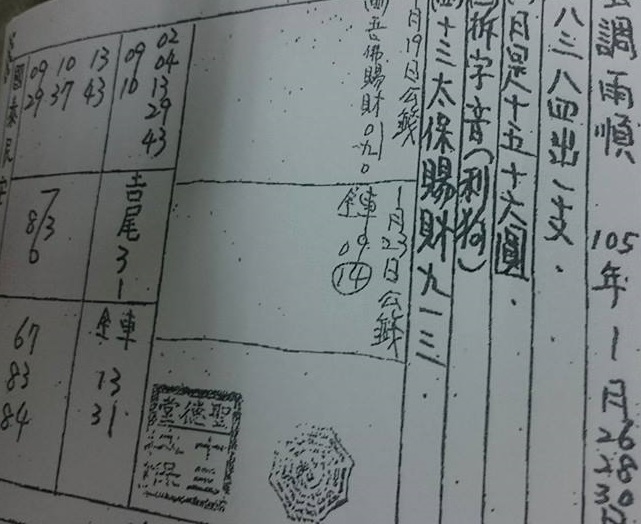 調雨順 105年1月26 28 30日
八三八四出一支.
月是十五十六圓.
拆字音(利狗)
十三太保賜財九一三
月19日公籤
五佛賜財
1月23日公籤
鍂車 09 14
02 04 13 29 43
09 10
13 43
10 37
09 29
國泰民安
吉尾 3 1
7 8/3 0
鍂車 13 31
67 83 84
聖德堂
十三太保